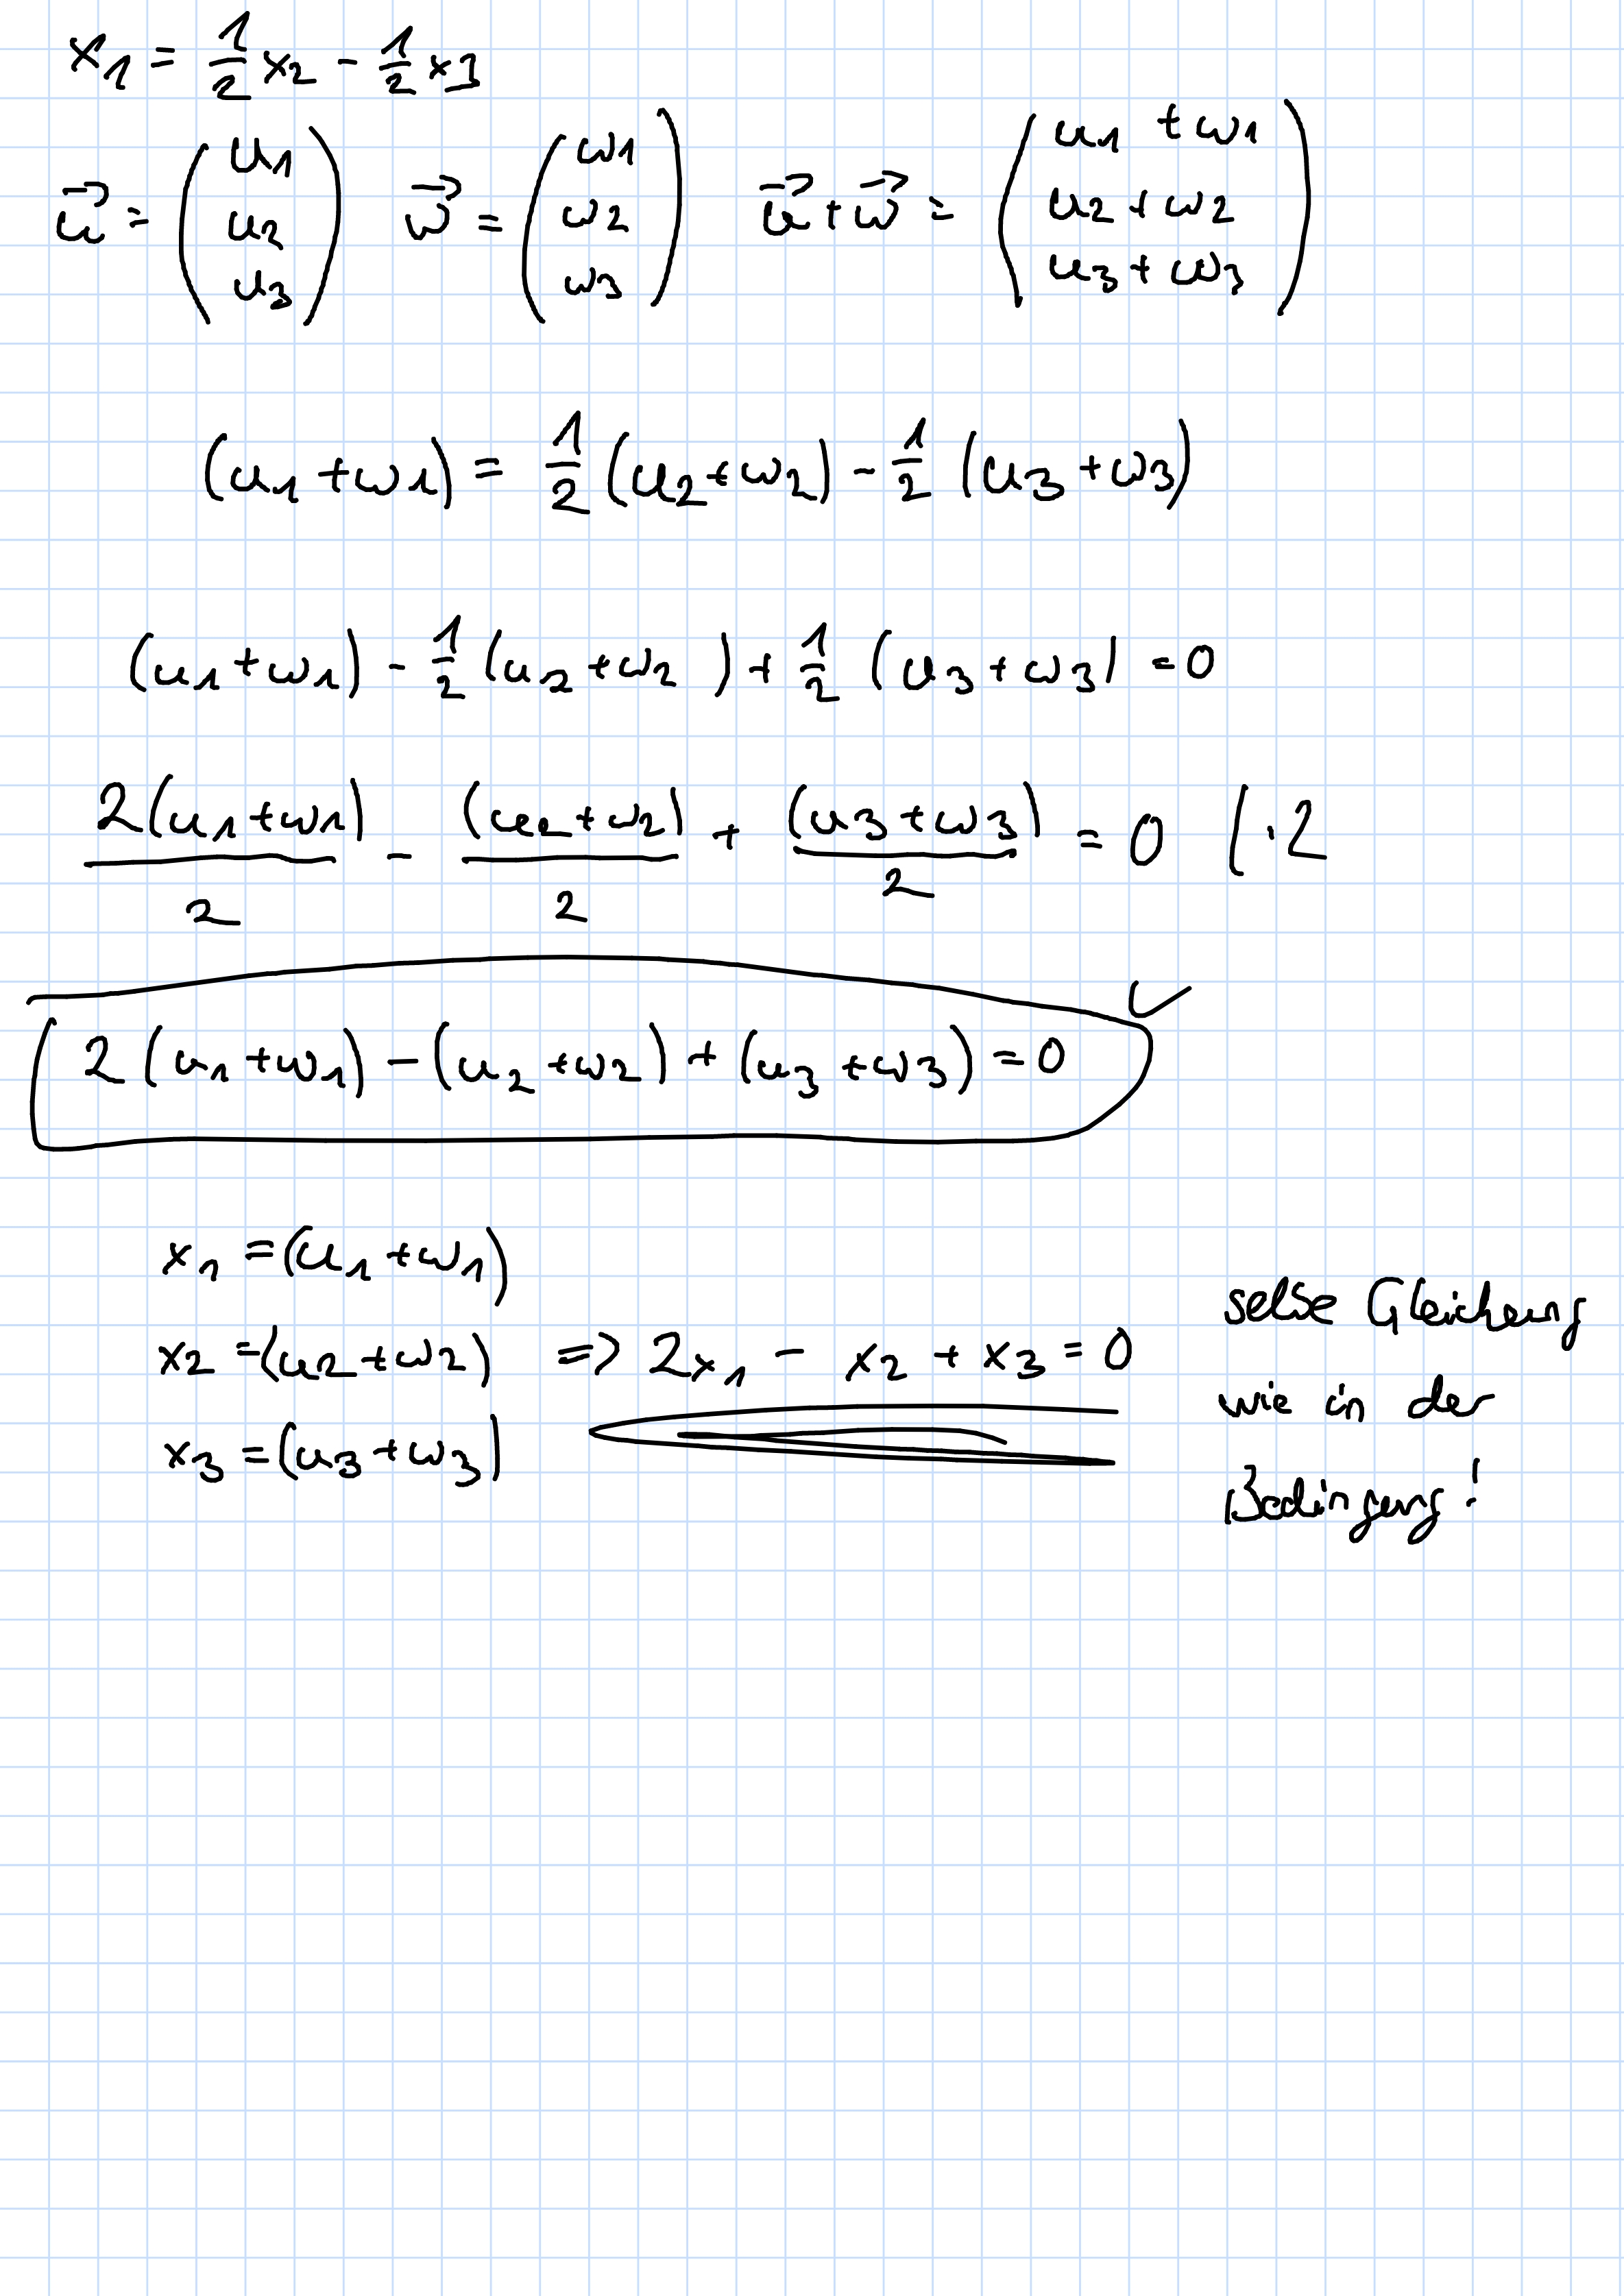 x₁ = 1/2 x₂ - 1/2 x₃
u⃗ = (u₁ u₂ u₃) w⃗ = (w₁ w₂ w₃) u⃗ + w⃗ = (u₁ + w₁ u₂ + w₂ u₃ + w₃)
(u₁ + w₁) = 1/2 (u₂ + w₂) - 1/2 (u₃ + w₃)
(u₁ + w₁) - 1/2 (u₂ + w₂) + 1/2 (u₃ + w₃) = 0
2(u₁ + w₁)/2 - (u₂ + w₂)/2 + (u₃ + w₃)/2 = 0 | · 2
2 (u₁ + w₁) - (u₂ + w₂) + (u₃ + w₃) = 0 ✓
x₁ = (u₁ + w₁)
x₂ = (u₂ + w₂) => 2x₁ - x₂ + x₃ = 0
x₃ = (u₃ + w₃)
selbe Gleichung
wie in der
Bedingung!